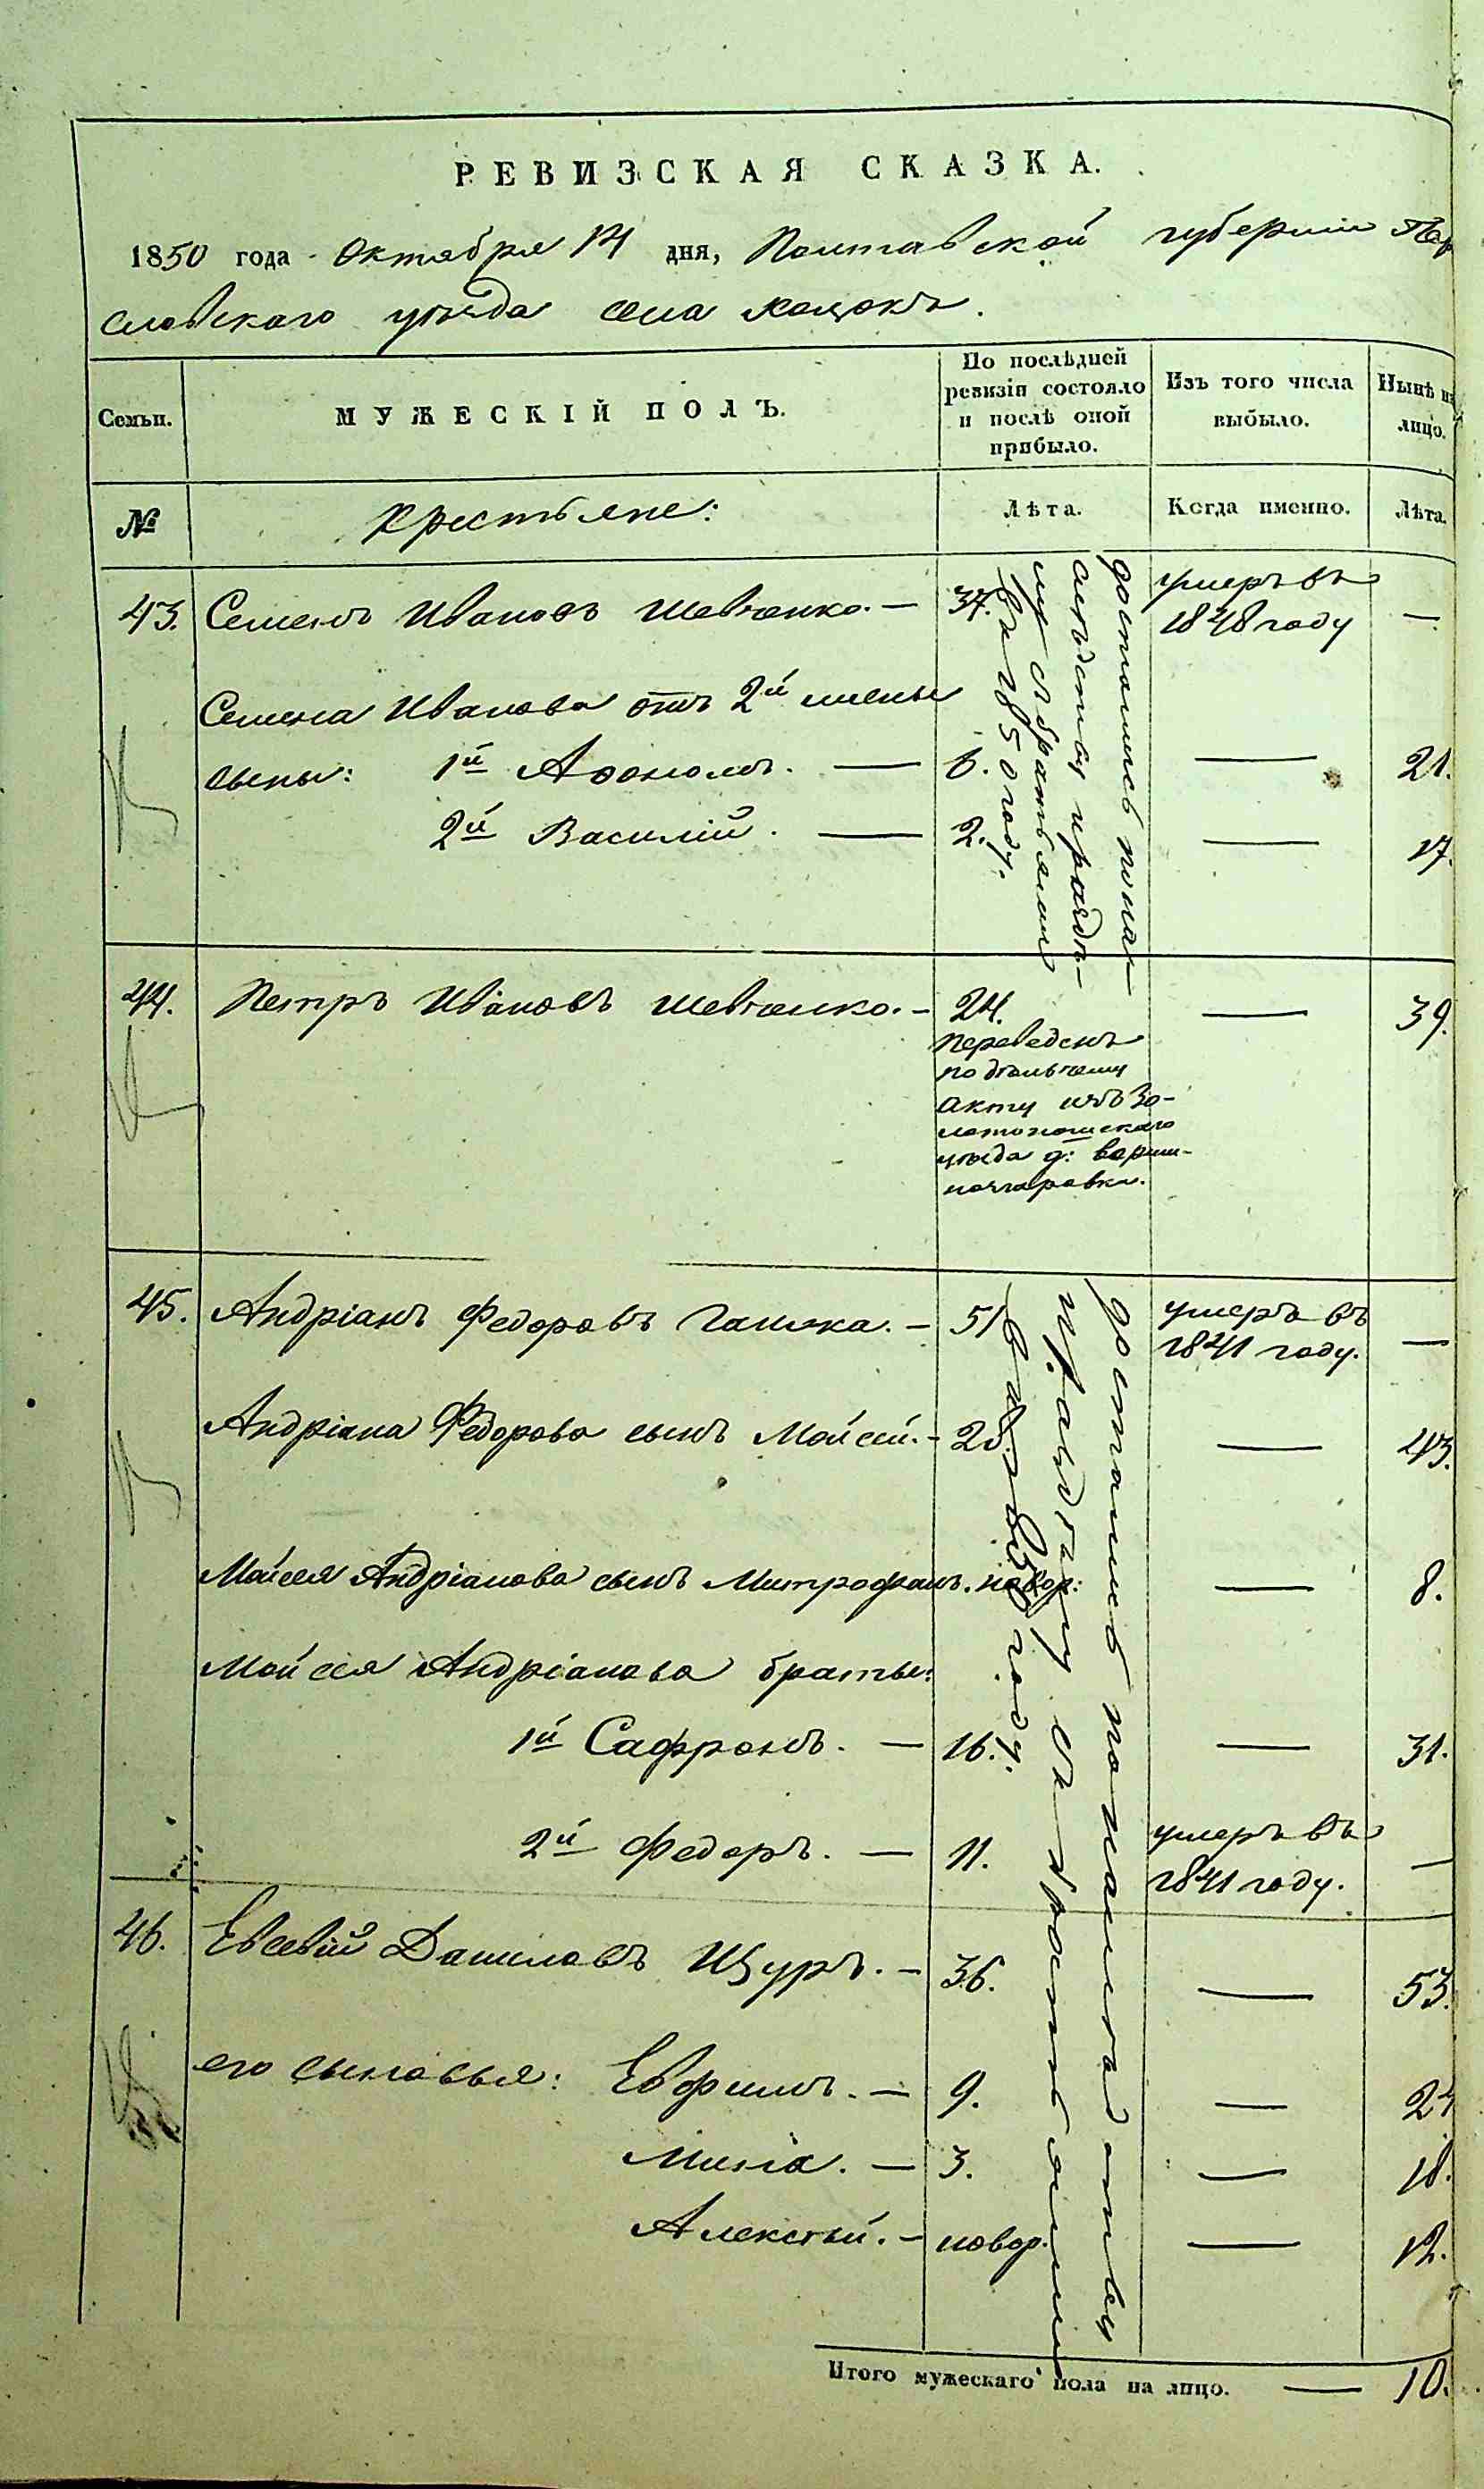 РЕВИЗСКАЯ СКАЗКА.
1850 года Октября 14 дня, Полтавской губерніи Пере
славскаго уѣзда села
Семьи.
МУЖЕСКІЙ ПОЛЪ.
По послѣдней
ревизіи состояло
и послѣ оной
прибыло.
Изъ того числа
выбыло.
Нынѣ на
лицо.
№
Крестьяне:
Лѣта.
Когда именно.
Лѣта.
43. Семенъ Ивановъ Шевченко. — 37. умеръ въ —
1848 году
Семена Иванова отъ 2й жены
сыны: 1й Афонасъ. — 6. — 21.
2й Василій. — 2. — 17.
достались по на
слѣдству и раздѣ-
лу съ братьями
въ 1850 году.
44. Петръ Ивановъ Шевченко. — 24. — 39.
Переведенъ
по дѣльчему
акту изъ Зо-
лотоношскаго
уѣзда д:
45. Андріанъ Федоровъ Галка. — 51 умеръ въ —
1841 году.
Андріана Федорова сынъ Мойсей. — 28. — 43.
Мойсея Андріанова сынъ Митрофанъ. новор: — 8.
Мойсея Андріанова братья:
1й Сафронъ. — 16. — 31.
2й Федоръ. — 11. умеръ въ —
1841 году.
достались по наслѣдству
и раздѣлу съ братьями
въ 1850 году.
46. Евсевій Даниловъ Щуръ. — 36. — 53.
его сыновья: Евфимъ. — 9. — 24
Мина. — 3. — 18.
Алексѣй. — новор. — 12.
Итого мужескаго пола на лицо. — 10.